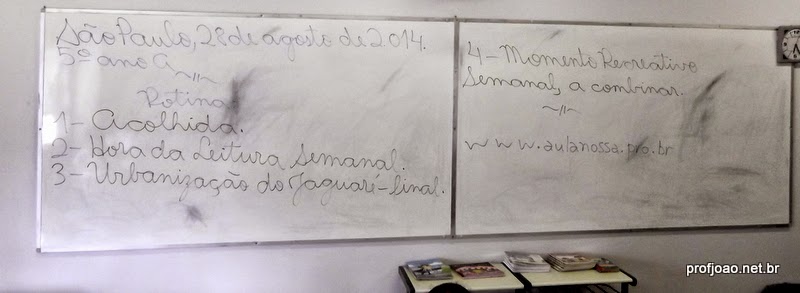 São Paulo, 28 de agosto de 2.014.
5º ano A
~//~
Rotina
1- Acolhida.
2- Hora da Leitura Semanal.
3- Urbanização do Jaguaré-final.
4- Momento Recreativo
Semanal, a combinar.
~//~
www.aulanossa.pro.br
profjoao.net.br